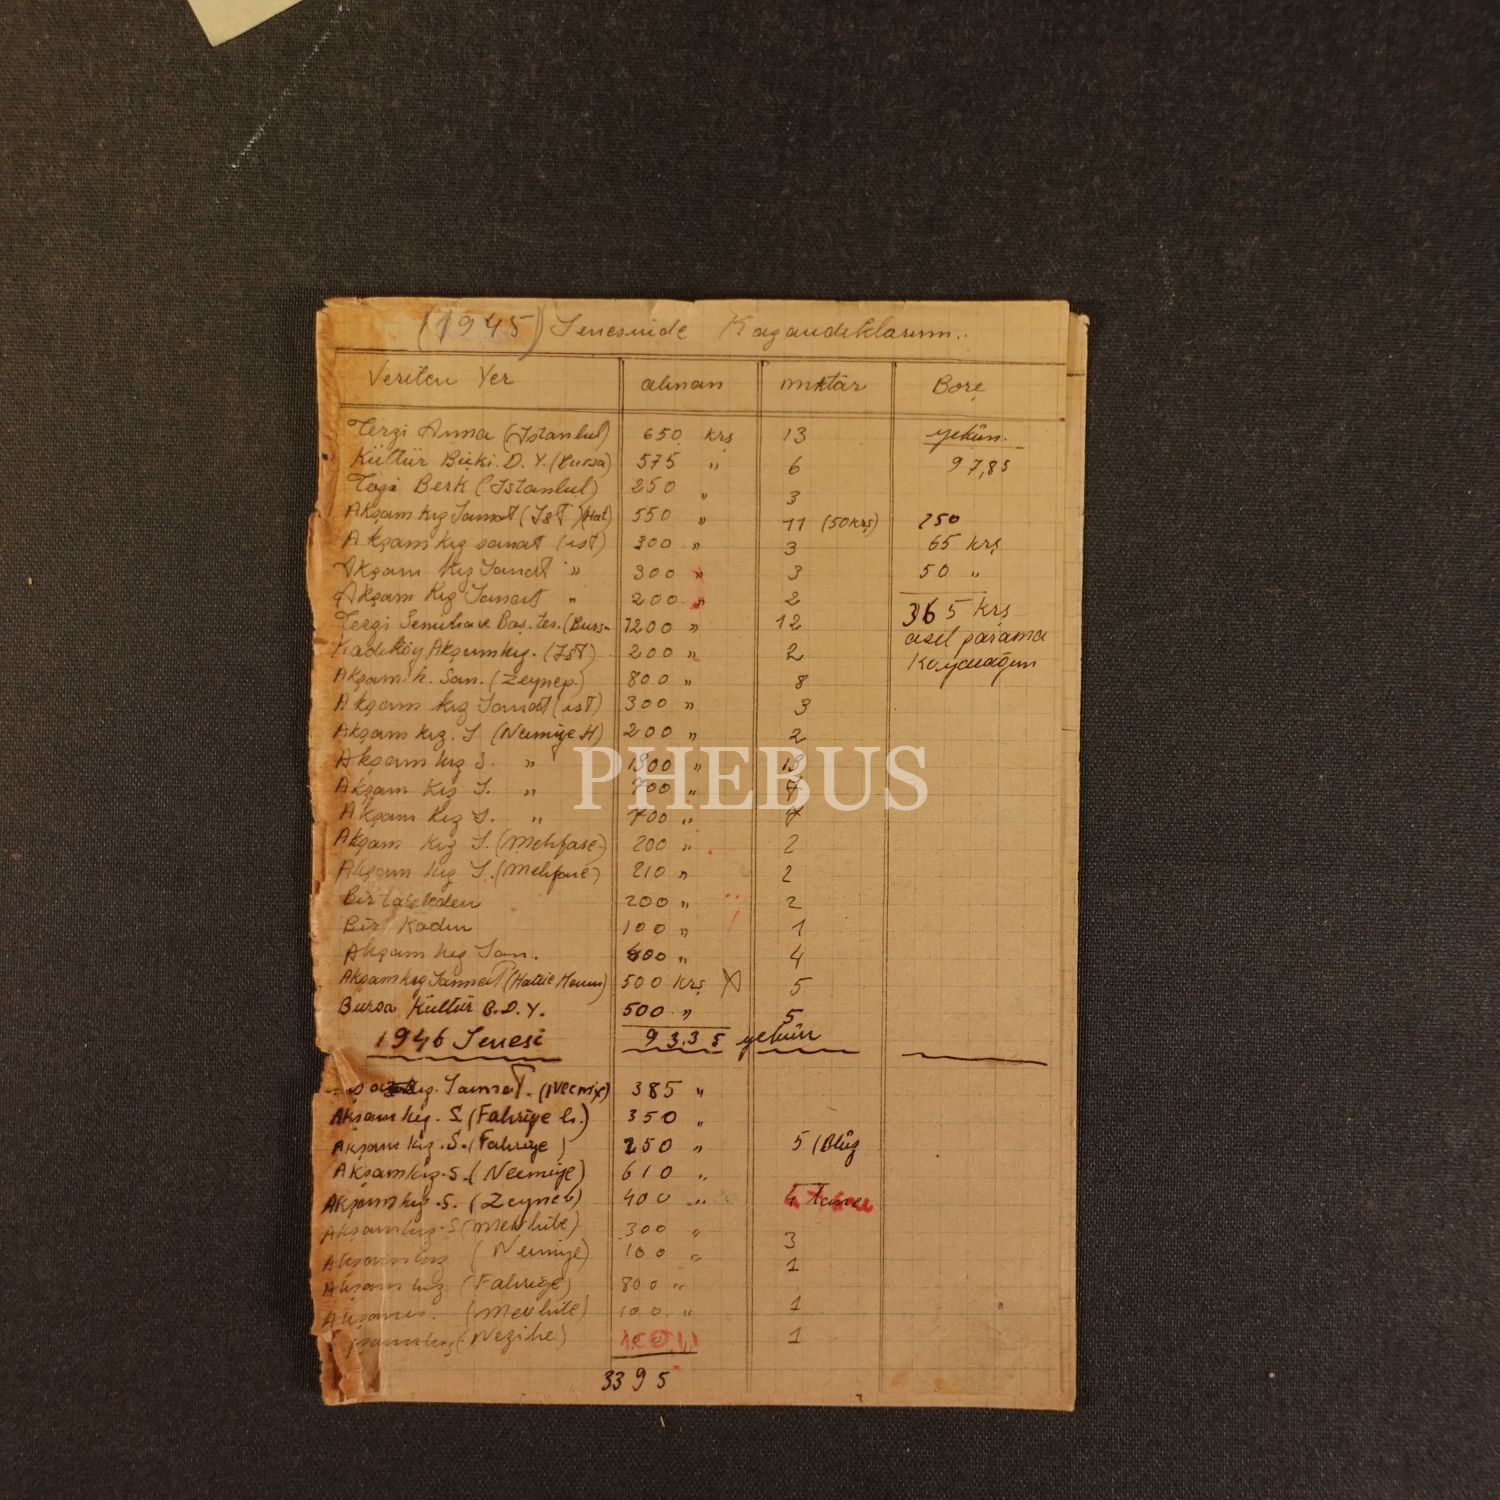 (1945) Senesinde Kazandıklarım..
Verilen Yer alınan miktar Borç
Terzi Anna (İstanbul) 650 krş 13 yekün.
Kültür Biçki. D. Y. (Bursa) 575 " 6 97,85
Berk (İstanbul) 250 " 3
Akşam kız Sanat (İST) (Hat) 550 " 11 (50 krş) 250
Akşam kız sanat (ist) 300 " 3 65 krş
Akşam kız Sanat " 300 " 3 50 "
Akşam kız Sanat " 200 " 2 365 krş
Terzi Baş. ter. (Bursa 1200 " 12 asıl parama
Kadıköy Akşamkız. (İST) 200 " 2
Akşam. k. San. (Zeynep.) 800 " 8
Akşam kız Sanat (ist) 300 " 3
Akşam kız. S (Necmiye H) 200 " 2
Akşam kız S. " 1300 " 13
Akşam kız S. " 700 " 7
Akşam kız S. " 700 " 7
Akşam kız S. 200 " 2
Akşam kız S. 210 " 2
Bir 200 " 2
Bir Kadın 100 " 1
Akşam kız San. 400 " 4
Akşam kız Sanat (Hatice Hanım) 500 krş X 5
Bursa Kültür B. D. Y. 500 " 5
1946 Senesi 93.35 yekün
kız. Sanat. 385 "
Akşam kız. S. (Fahriye h.) 350 "
Akşam kız. S. (Fahriye) 250 " 5 (Blûz
Akşamkız. S. (Necmiye) 610 "
Akşamkız. S. (Zeyneb) 400 " 4 tane
Akşamkız. S (Mevhibe) 300 " 3
Akşamkız (Necmiye) 100 " 1
Akşam kız (Fahriye) 800 "
Akşam. (Mevhibe) 100 " 1
(Nezihe) 100 " 1
3395
PHEBUS